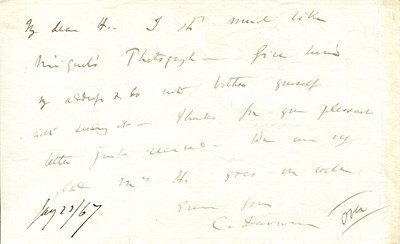 My dear H.— I shd much like
Photograph — Give him
my address & do not bother yourself
with sending it — Thanks for your pleasant
letter just received — We are very
glad Mrs H. goes on well
Ever yours
C. Darwin
Jany 23/67
Over